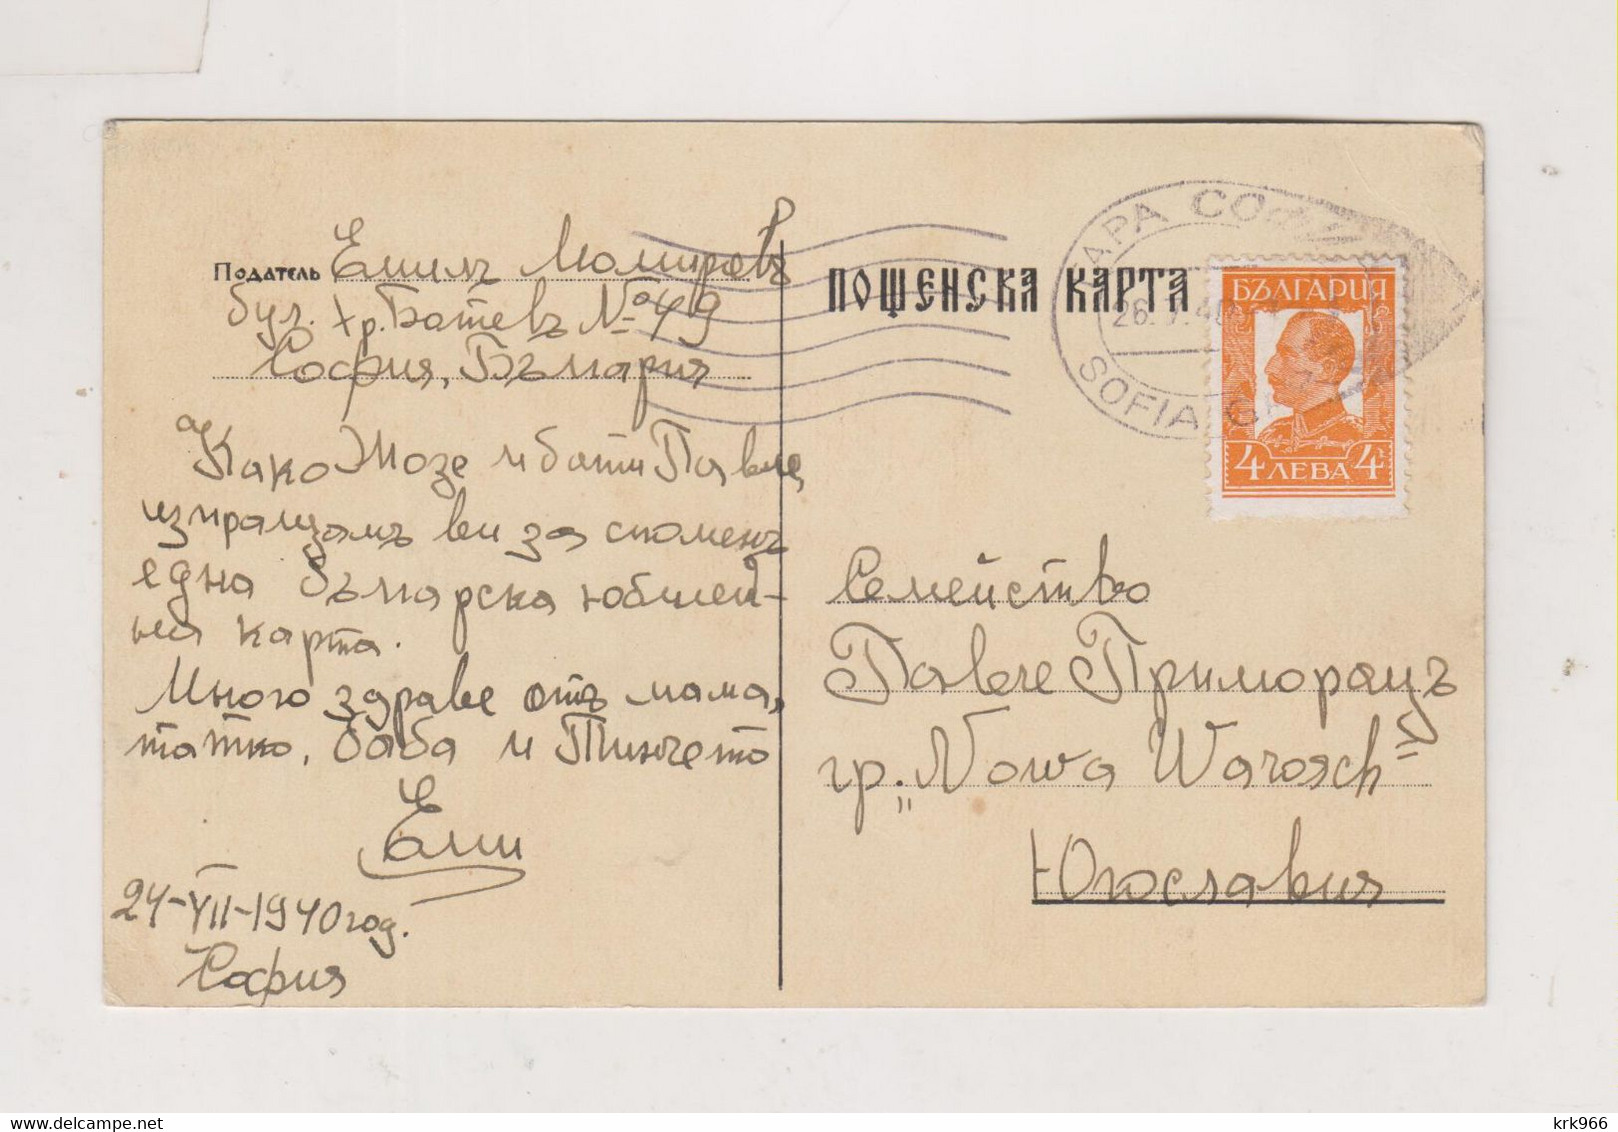 Податель Емилъ Момировъ
бул. Хр. Ботевъ № 49
София, България
Како Мозе и бати Павле,
изпращамъ ви за споменъ
една българска юбилей-
на карта.
Много здраве отъ мама,
татко, баба и Пинчето
Еми
24-VII-1940 год.
София
ПОЩЕНСКА КАРТА
ГАРА СОФИЯ
26.
40
SOFIA GARE
БЪЛГАРИЯ
4 ЛЕВА 4
Семейство
Павле Приморацъ
гр. „Nowa Warosch"
Югославия
krk966